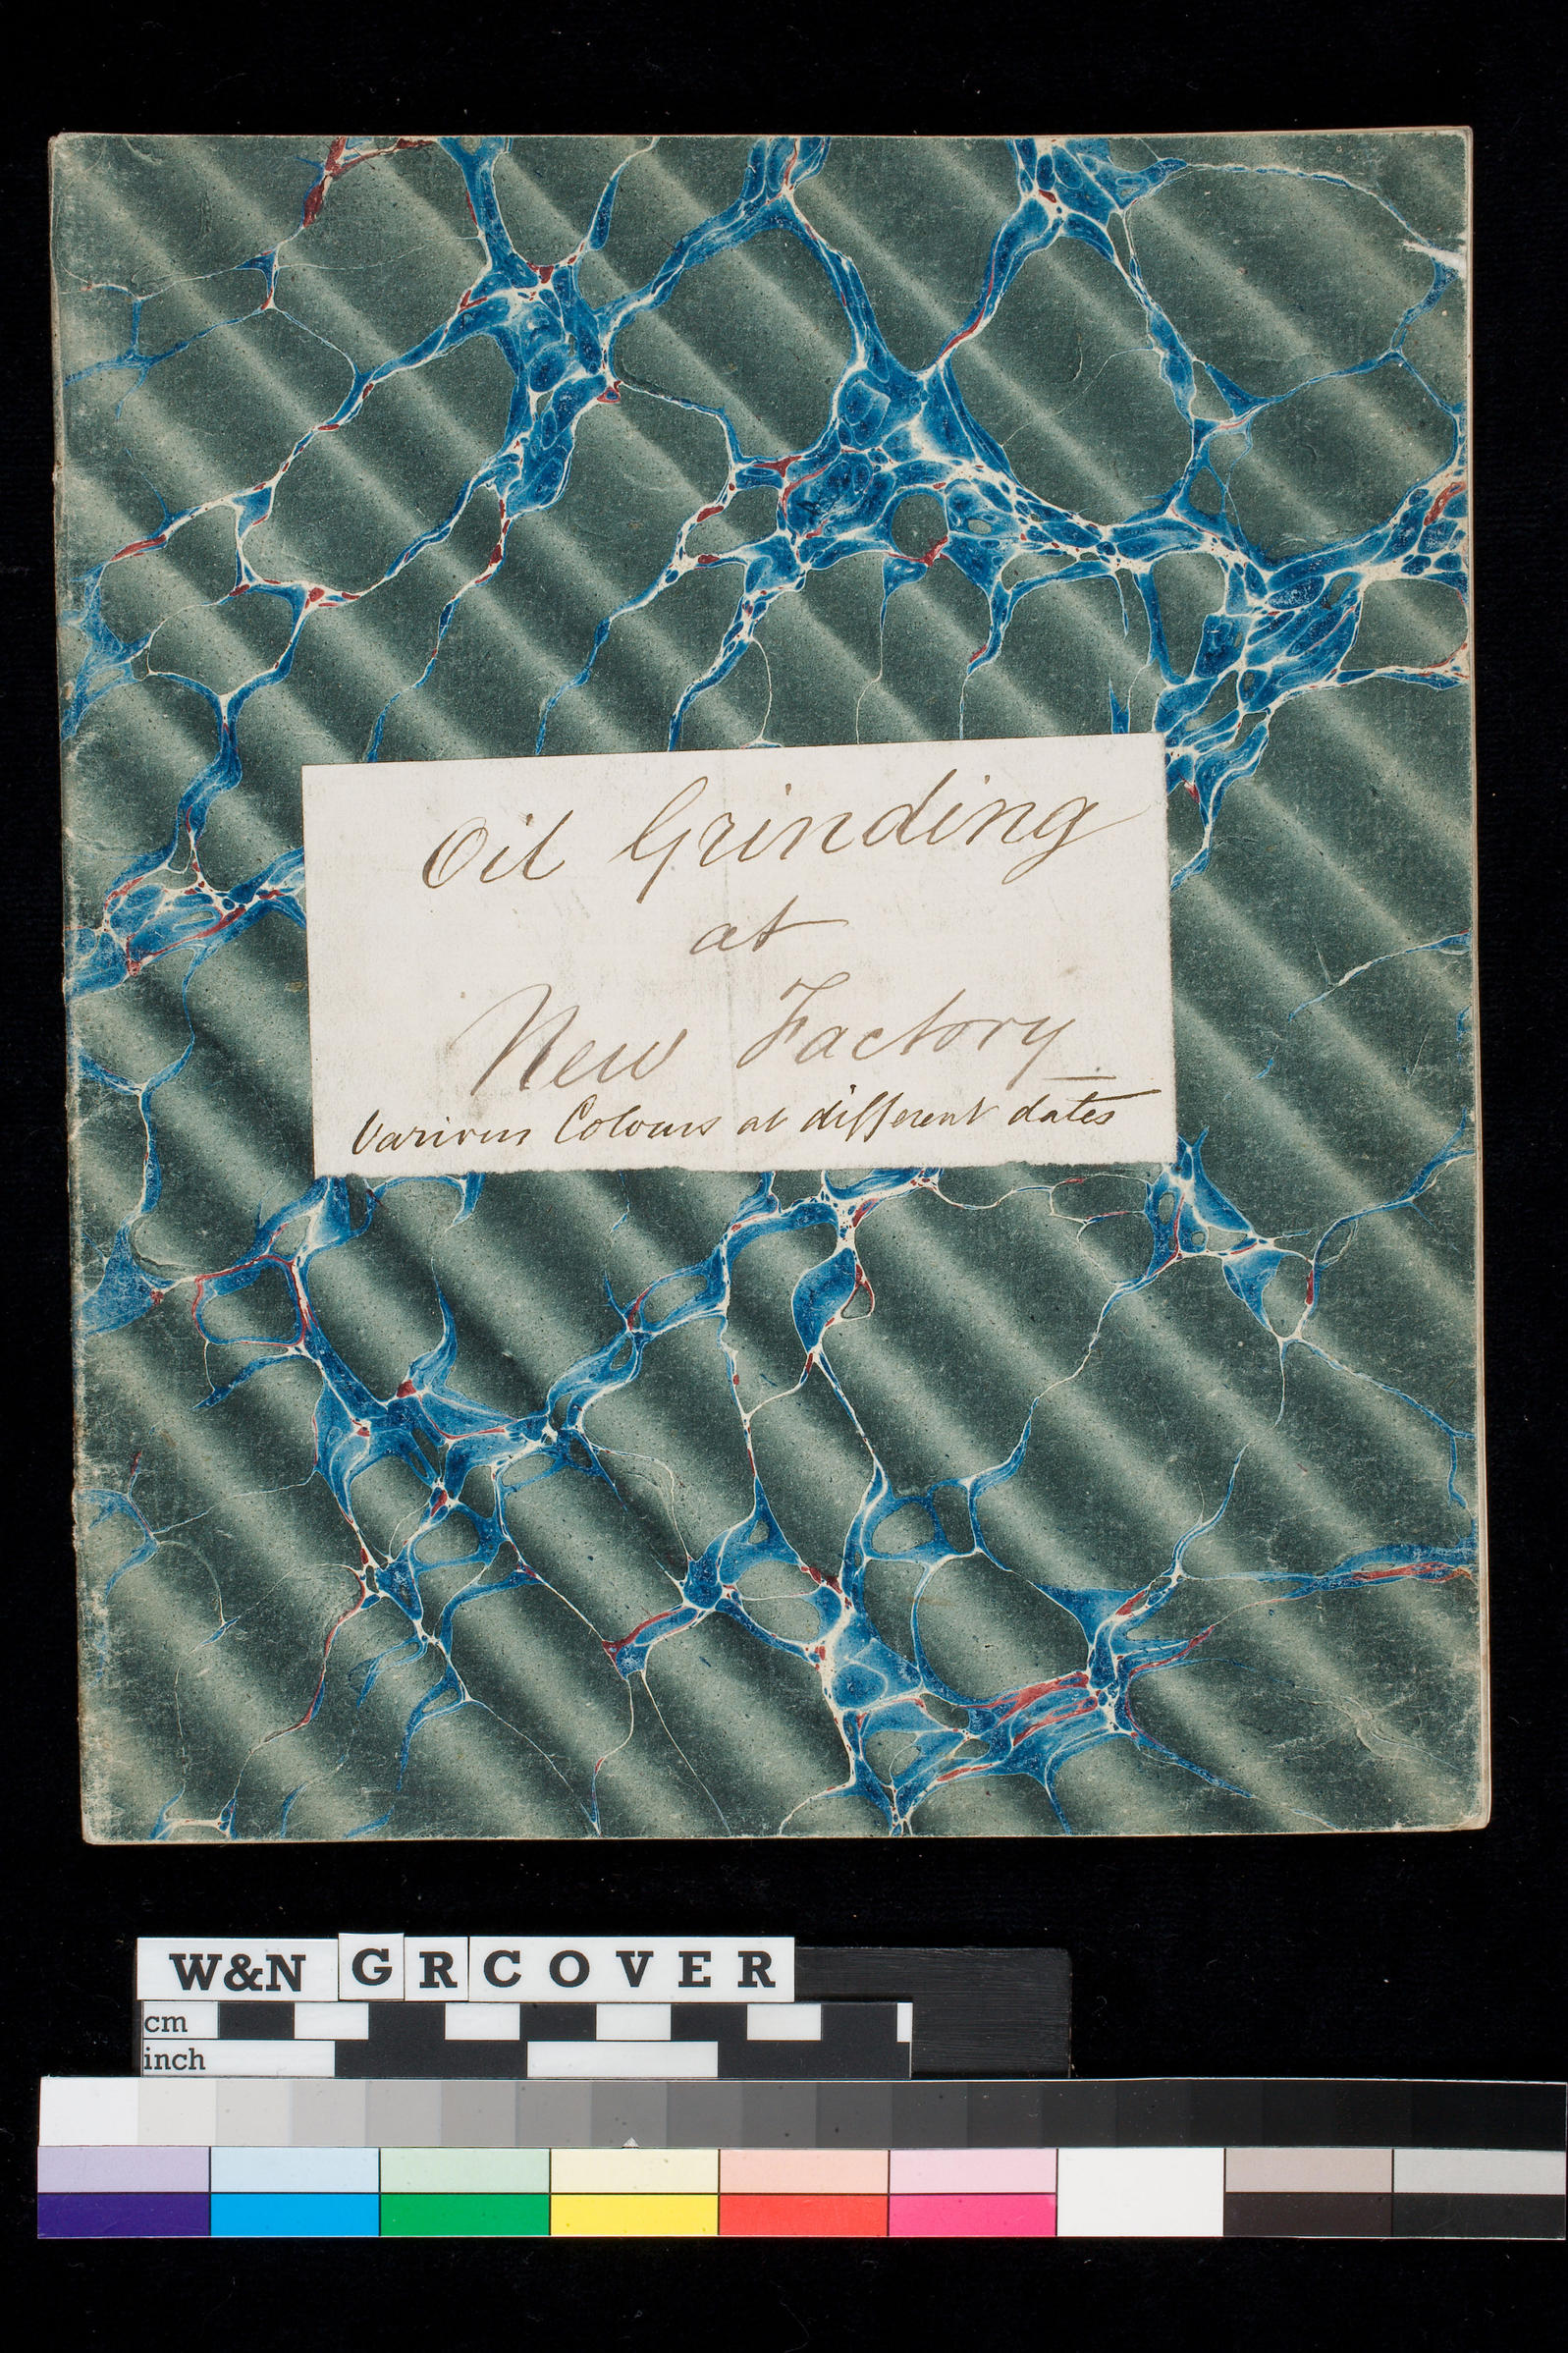 Oil Grinding
at
New Factory
Various Colours at different dates
W&N GRCOVER
cm
inch